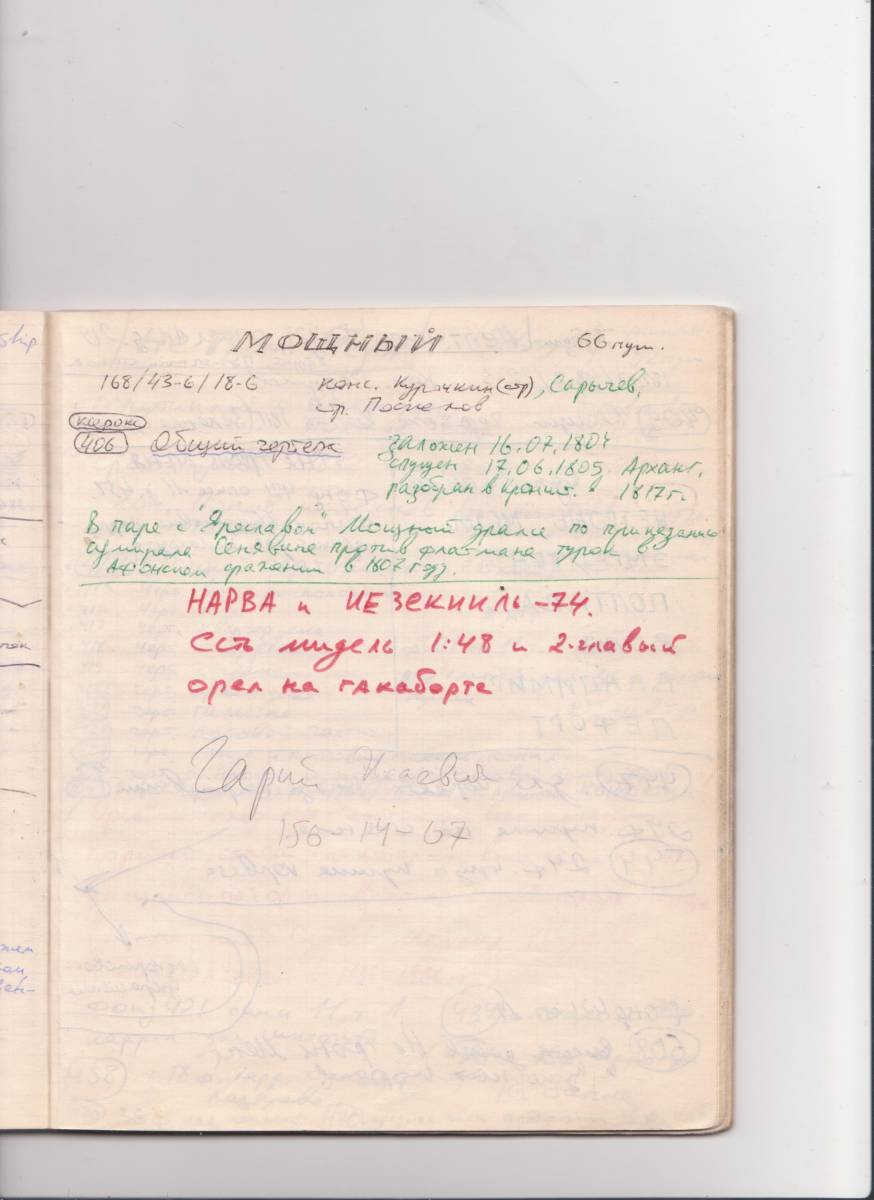 МОЩНЫЙ 66 пуш.
168/43-6/18-6 конс. Курочкин (стр), Сарычев,
стр. Поспелов
406 Общий чертеж
заложен 16.07.1804
спущен 17.06.1805 Арханг.
разобран в Кроншт. в 1817 г.
В паре с "Ярославом" Мощный дрался по приказанию
адмирала Сенявина против флагмана турок в
Афонском сражении в 1807 году.
НАРВА и ИЕЗЕКИИЛЬ-74.
Есть мидель 1:48 и 2-главый
орел на гакаборте
Гарий
156-14-67